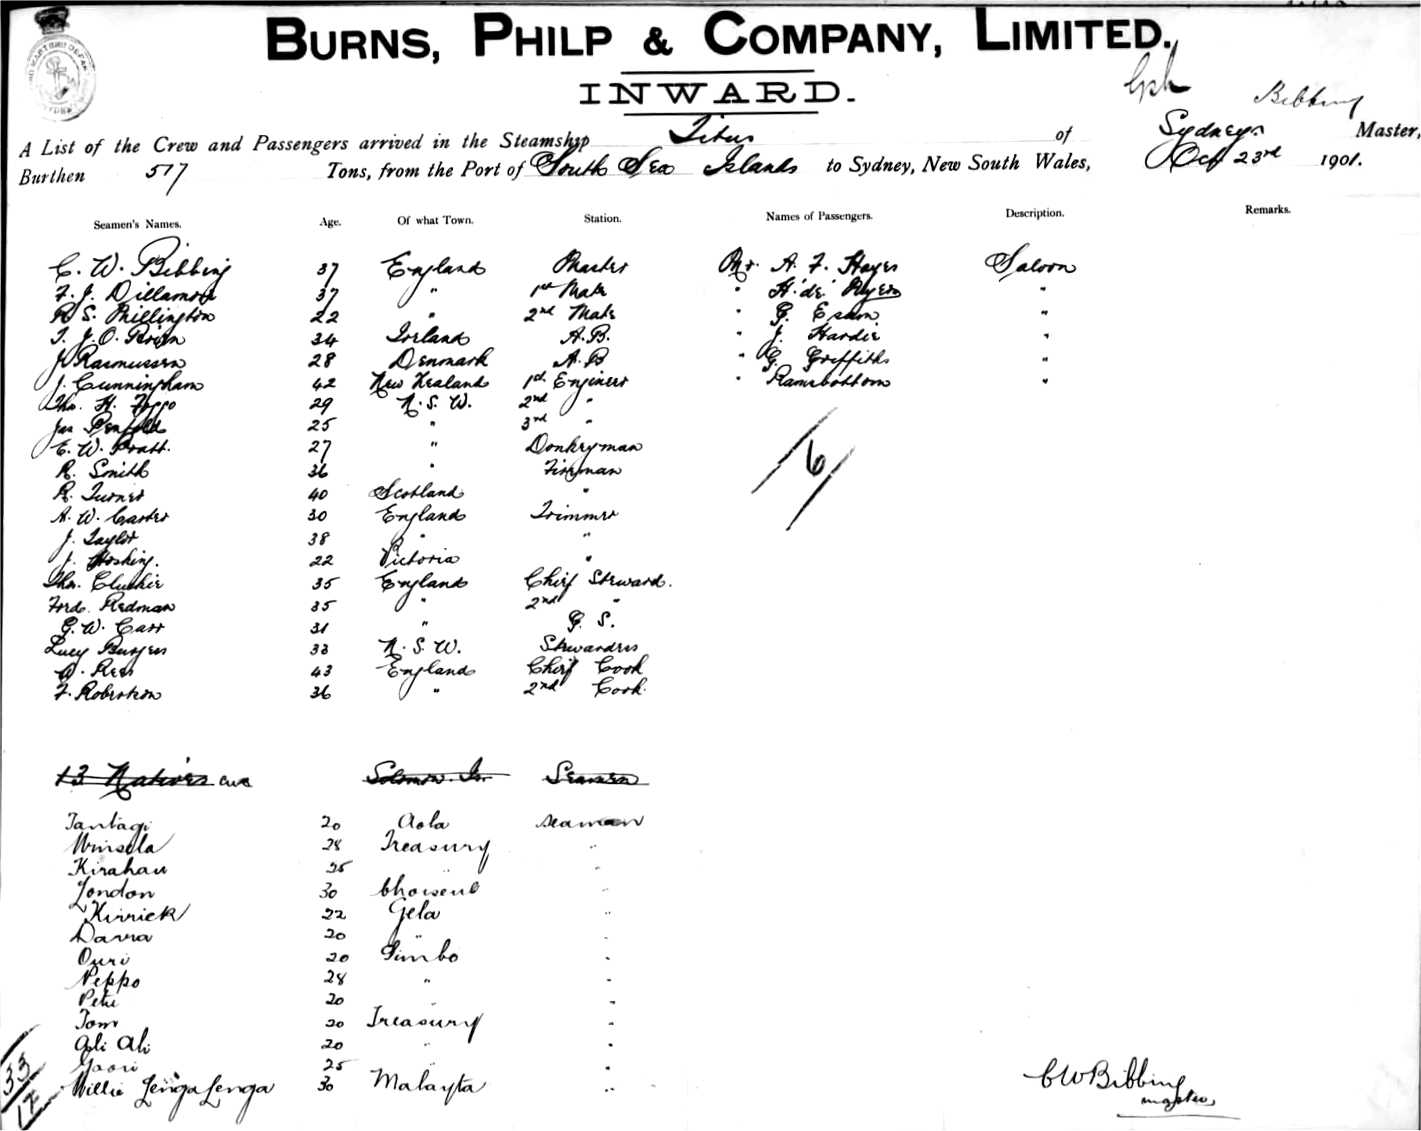 BURNS, PHILP & COMPANY, LIMITED.
INWARD.
Bibbing
A List of the Crew and Passengers arrived in the Steamship Titus of Sydney Master,
Burthen 577 Tons, from the Port of South Sea Islands to Sydney, New South Wales, Oct 23rd 1901.
Seamen's Names. Age. Of what Town. Station. Names of Passengers. Description. Remarks.
C. W. Bibbing 37 England Master Mr. A. F. Hayes Saloon
F. J. Dillamore 37 " 1st Mate " H. de " "
R S. Millington 22 " 2nd Mate " G. "
T. J. O. Brien 34 Ireland A.B. " J. Hardie "
J. Rasmussen 28 Denmark A.B " G. Griffiths "
J. Cunningham 42 New Zealand 1st Engineer " Ramsbottom "
Tho. H. 29 N. S. W. 2nd "
Jas Penfold 25 " 3rd "
E. W. Pratt. 27 " Donkeyman
R. Smith 36 " Fireman
R. Turner 40 Scotland "
A. W. Carter 30 England Trimmer
J. Taylor 38 " "
J. Hosking. 22 Victoria "
Tho. 35 England Chief Steward.
Ford. Redman 35 " 2nd "
G. W. Carr 31 " G. S.
Lucy Burgess 33 N. S. W. Stewardess
Rees 43 England Chief Cook
F. Robertson 36 " 2nd Cook.
6
13 Natives Solomon Is. Seamen
Tantagi 20 Aola seaman
28 Treasury "
Kirahau 25 " "
London 30 Choiseul "
Kirriek 22 Gela "
Davra 20 " "
Ouri 20 Simbo "
Peppo 28 " "
Pete 20 " "
Tom 20 Treasury "
Ali Ali 20 " "
25 " "
Willie Lenga Lenga 30 Malayta "
33
17
C W Bibbing
master